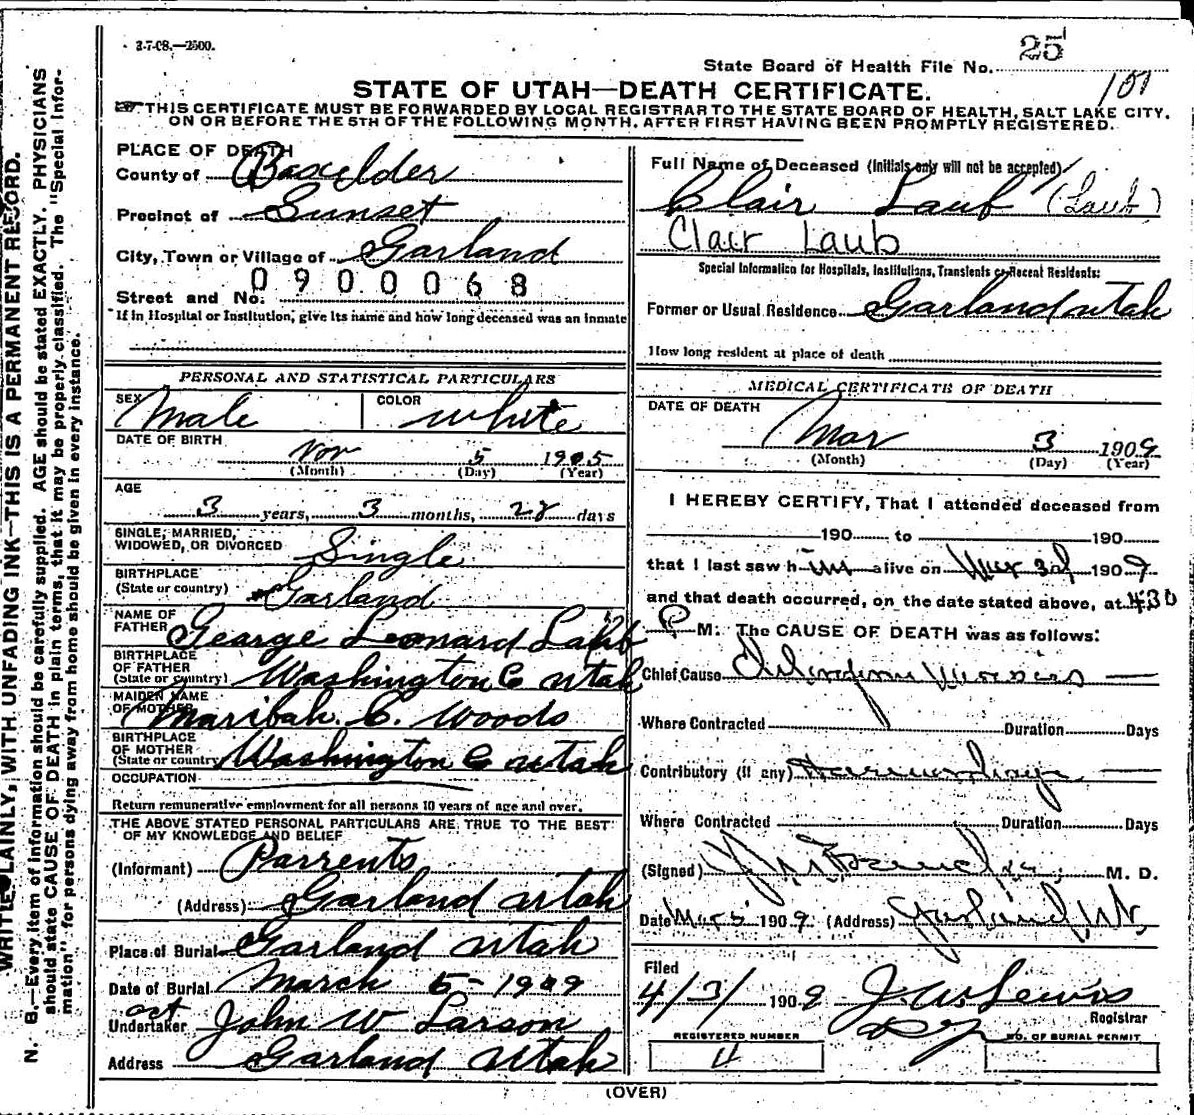 3-7-08.—2500.
State Board of Health File No. 25
STATE OF UTAH—DEATH CERTIFICATE.
THIS CERTIFICATE MUST BE FORWARDED BY LOCAL REGISTRAR TO THE STATE BOARD OF HEALTH, SALT LAKE CITY,
ON OR BEFORE THE 5TH OF THE FOLLOWING MONTH, AFTER FIRST HAVING BEEN PROMPTLY REGISTERED.
WRITE PLAINLY, WITH UNFADING INK—THIS IS A PERMANENT RECORD.
N. B.—Every item of information should be carefully supplied. AGE should be stated EXACTLY. PHYSICIANS
should state CAUSE OF DEATH in plain terms, that it may be properly classified. The "Special Infor-
mation" for persons dying away from home should be given in every instance.
PLACE OF DEATH
County of Boxelder
Precinct of Sunset
City, Town or Village of Garland
0900068
Street and No.
If in Hospital or Institution, give its name and how long deceased was an inmate
PERSONAL AND STATISTICAL PARTICULARS
SEX Male COLOR White
DATE OF BIRTH Nov 5 1905
(Month) (Day) (Year)
AGE
3 years, 3 months, 28 days
SINGLE, MARRIED,
WIDOWED, OR DIVORCED Single
BIRTHPLACE
(State or country) Garland
NAME OF
FATHER George Leonard Laub
BIRTHPLACE
OF FATHER
(State or country) Washington Co Utah
MAIDEN NAME
OF MOTHER Maribah. C. Woods
BIRTHPLACE
OF MOTHER
(State or country) Washington Co Utah
OCCUPATION
Return remunerative employment for all persons 10 years of age and over.
THE ABOVE STATED PERSONAL PARTICULARS ARE TRUE TO THE BEST
OF MY KNOWLEDGE AND BELIEF
(Informant) Parrents
(Address) Garland Utah
Place of Burial Garland Utah
Date of Burial March 5- 1909
act
Undertaker John W Larson
Address Garland Utah
Full Name of Deceased (Initials only will not be accepted)
Clair Laub (Laub)
Clair Laub
Special Information for Hospitals, Institutions, Transients or Recent Residents:
Former or Usual Residence Garland Utah
How long resident at place of death
MEDICAL CERTIFICATE OF DEATH
DATE OF DEATH
Mar 3 1909
(Month) (Day) (Year)
I HEREBY CERTIFY, That I attended deceased from
190 to 190
that I last saw him alive on Mar 3d 1909
and that death occurred, on the date stated above, at 430
P M. The CAUSE OF DEATH was as follows:
Chief Cause
Where Contracted Duration Days
Contributory (if any)
Where Contracted Duration Days
(Signed) M. D.
Date Mar 5 1909 (Address) Garland, Ut.
Filed
4/3/ 1909 J. W. Lewis
Registrar
REGISTERED NUMBER NO. OF BURIAL PERMIT
(OVER)